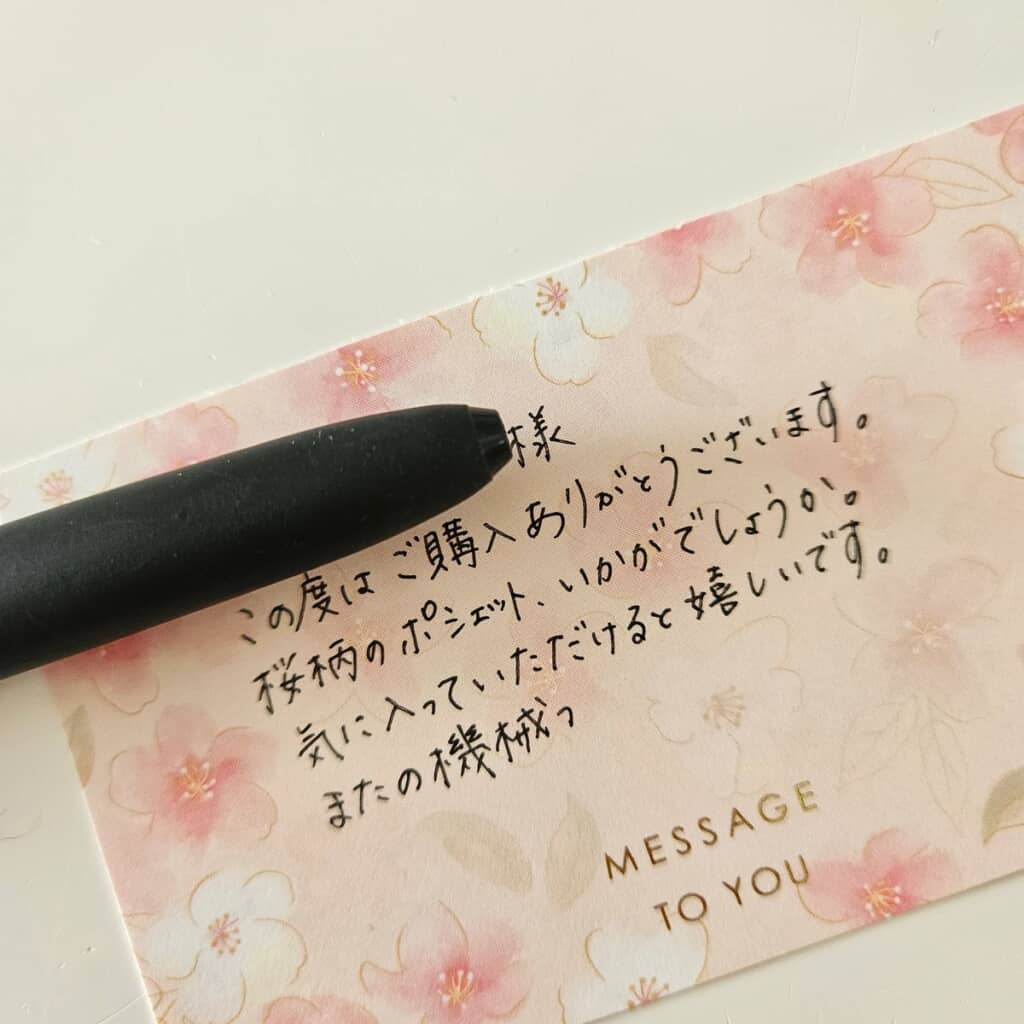 様
この度は ご購入ありがとうございます。
桜柄のポシェット、いかがでしょうか。
気に入っていただけると嬉しいです。
またの機械っ
MESSAGE
TO YOU